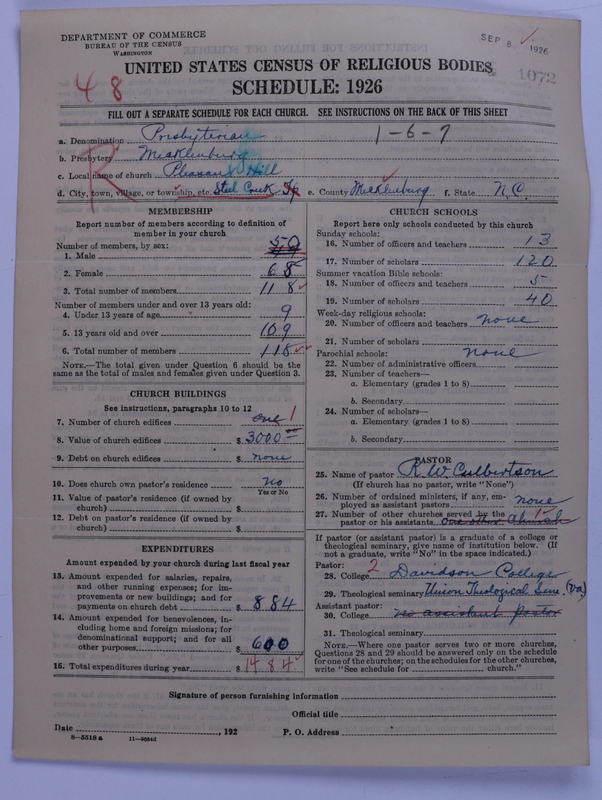 DEPARTMENT OF COMMERCE
BUREAU OF THE CENSUS
WASHINGTON
SEP 8 1926
1072
48
UNITED STATES CENSUS OF RELIGIOUS BODIES
SCHEDULE: 1926
FILL OUT A SEPARATE SCHEDULE FOR EACH CHURCH. SEE INSTRUCTIONS ON THE BACK OF THIS SHEET
R
1-6-7
a. Denomination Presbyterian
b. Presbytery Mecklenburg
c. Local name of church Pleasant Hill
d. City, town, village, or township, etc. Steel Creek Tp e. County Mecklenburg f. State N.C.
MEMBERSHIP
Report number of members according to definition of member in your church
Number of members, by sex:
1. Male 50
2. Female 68
3. Total number of members 118
Number of members under and over 13 years old:
4. Under 13 years of age 9
5. 13 years old and over 109
6. Total number of members 118
NOTE.—The total given under Question 6 should be the same as the total of males and females given under Question 3.
CHURCH BUILDINGS
See instructions, paragraphs 10 to 12
7. Number of church edifices one 1
8. Value of church edifices $ 3000
9. Debt on church edifices $ none
10. Does church own pastor's residence no
Yes or No
11. Value of pastor's residence (if owned by church) $
12. Debt on pastor's residence (if owned by church) $
EXPENDITURES
Amount expended by your church during last fiscal year
13. Amount expended for salaries, repairs, and other running expenses; for improvements or new buildings; and for payments on church debt $ 884
14. Amount expended for benevolences, including home and foreign missions; for denominational support; and for all other purposes $ 600
15. Total expenditures during year $ 1484
CHURCH SCHOOLS
Report here only schools conducted by this church
Sunday schools:
16. Number of officers and teachers 13
17. Number of scholars 120
Summer vacation Bible schools:
18. Number of officers and teachers 5
19. Number of scholars 40
Week-day religious schools:
20. Number of officers and teachers none
21. Number of scholars
Parochial schools: none
22. Number of administrative officers
23. Number of teachers—
a. Elementary (grades 1 to 8)
b. Secondary
24. Number of scholars—
a. Elementary (grades 1 to 8)
b. Secondary
PASTOR
25. Name of pastor R. W. Culbertson
(If church has no pastor, write "None")
26. Number of ordained ministers, if any, employed as assistant pastors none
27. Number of other churches served by the pastor or his assistants one other church 1
If pastor (or assistant pastor) is a graduate of a college or theological seminary, give name of institution below. (If not a graduate, write "No" in the space indicated.)
Pastor: 2
28. College Davidson College
29. Theological seminary Union Theological Sem (Va)
Assistant pastor:
30. College no assistant pastor
31. Theological seminary
NOTE.—Where one pastor serves two or more churches, Questions 28 and 29 should be answered only on the schedule for one of the churches; on the schedules for the other churches, write "See schedule for church."
Signature of person furnishing information
Official title
Date , 192 P. O. Address
8-5518a 11-9034d